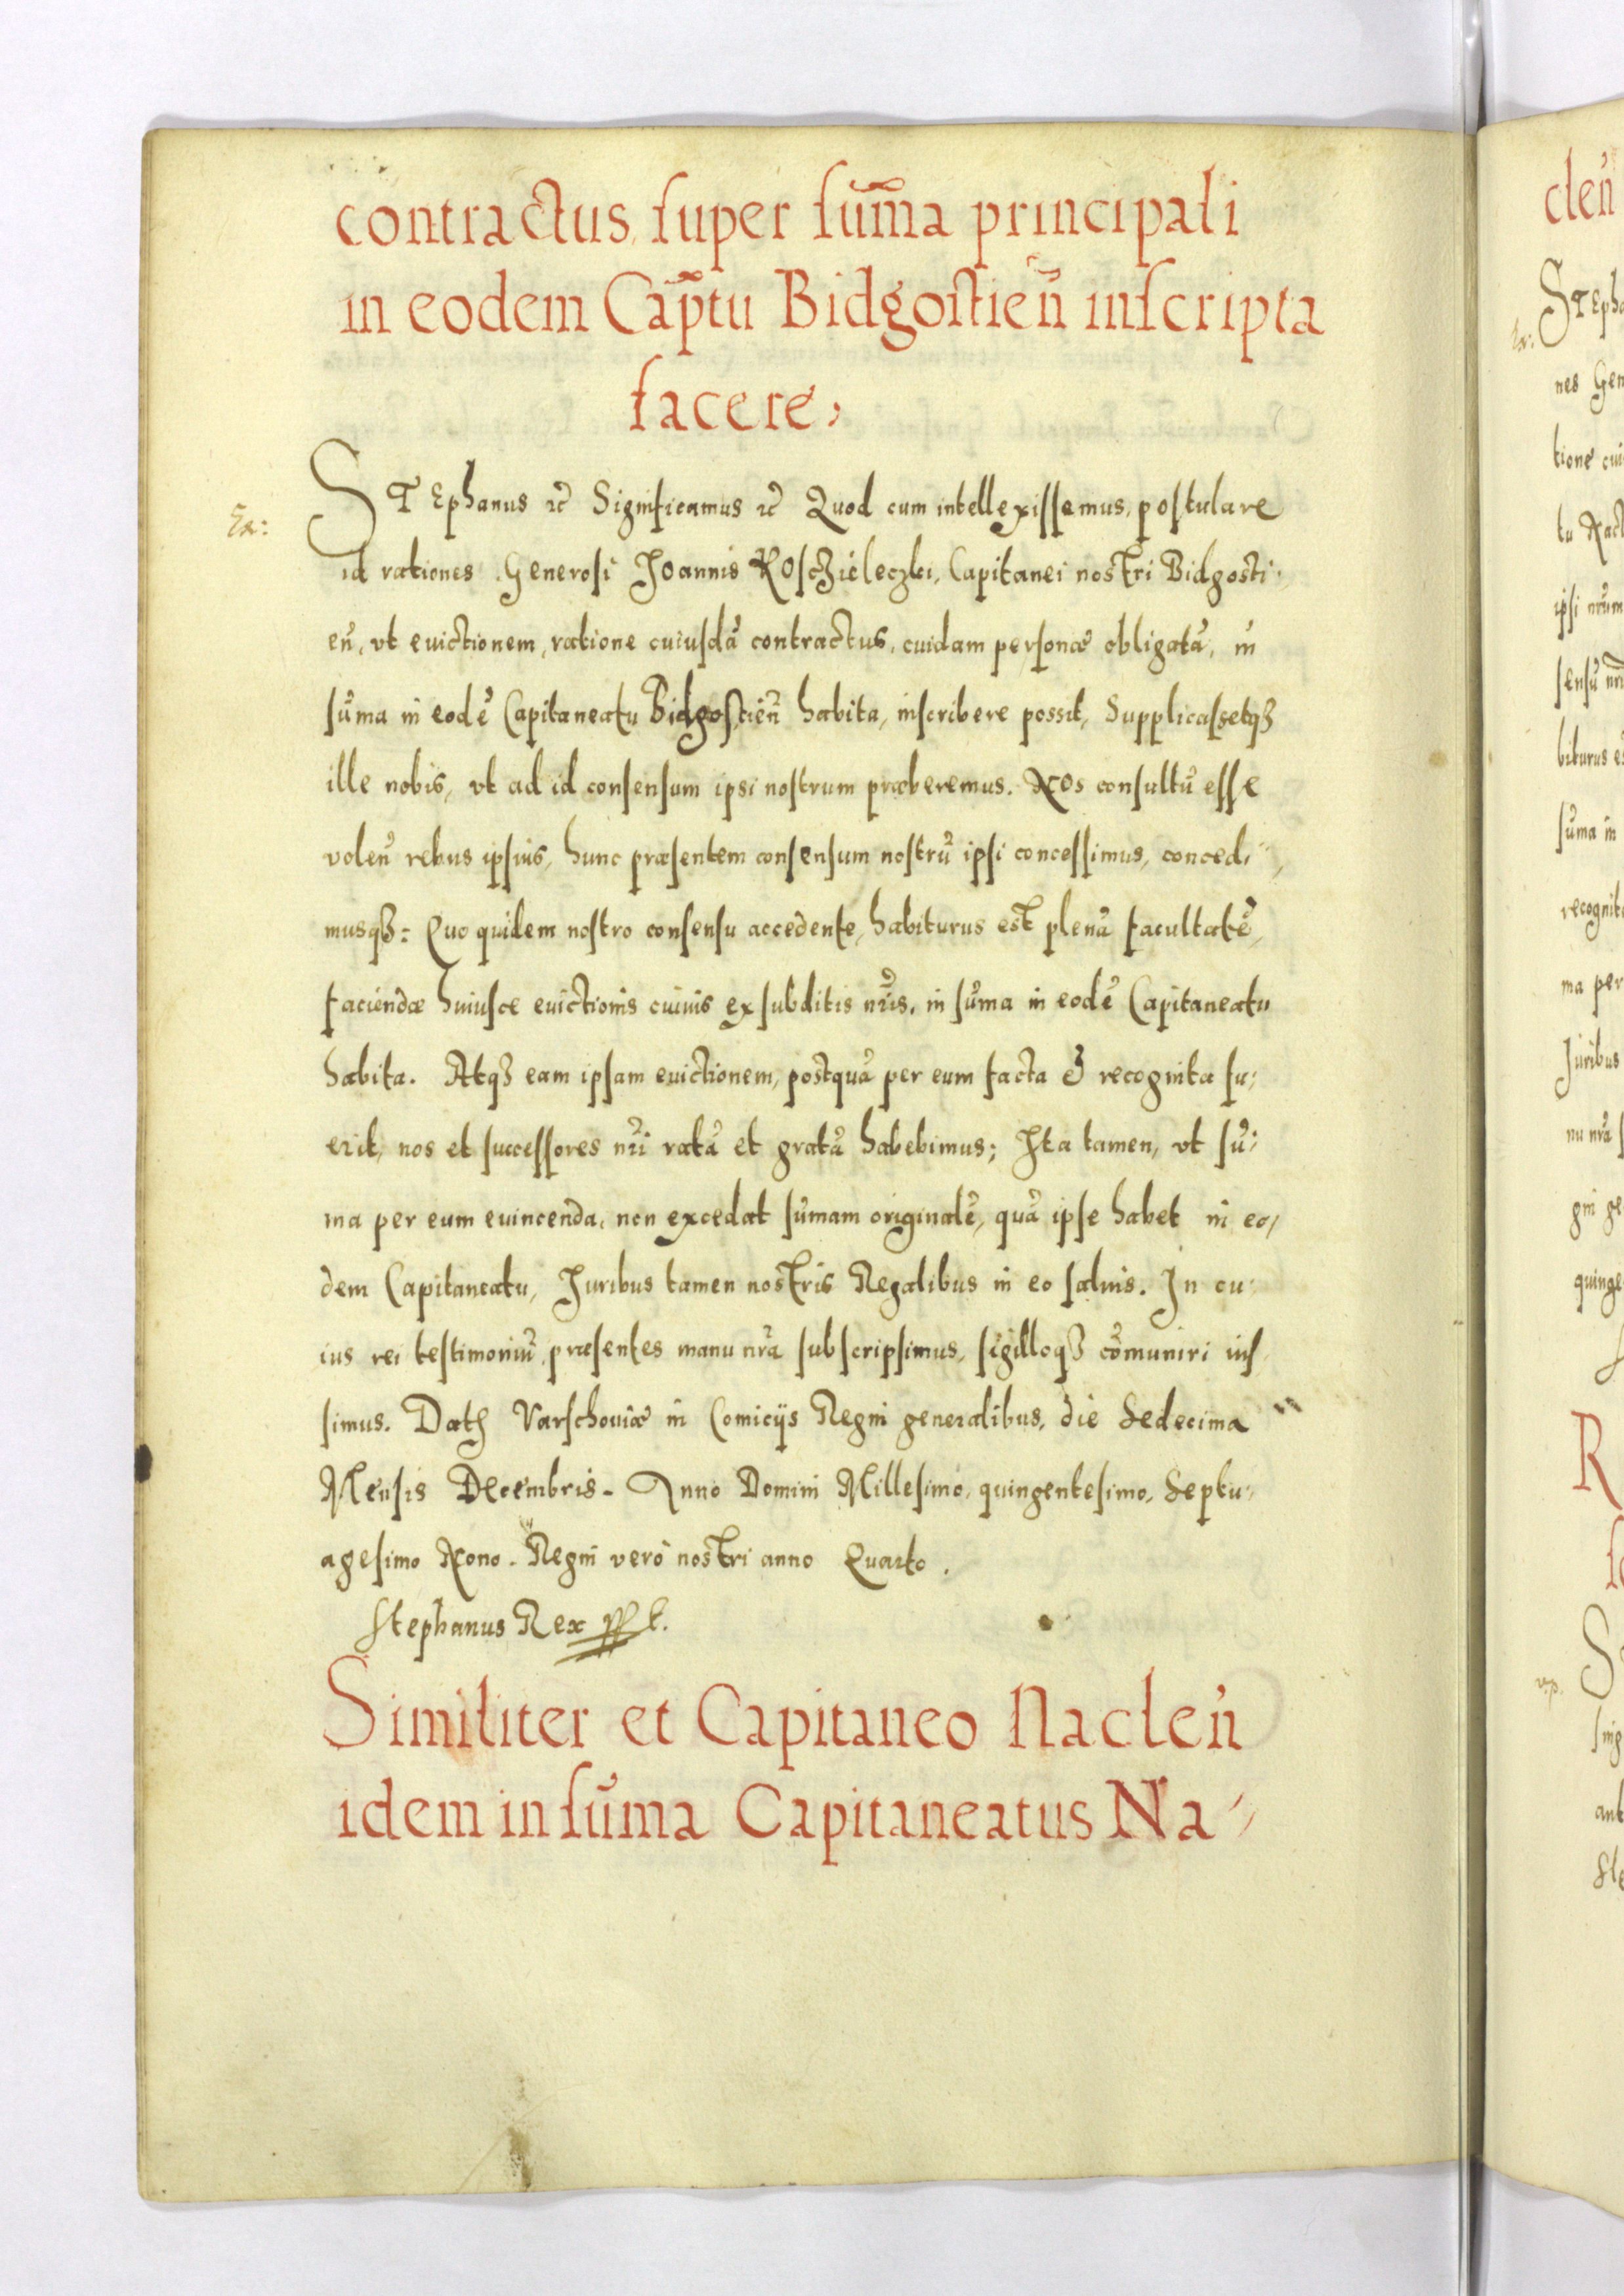 contractus, super sum̃a principali
in eodem Cap̃tu Bidgostien̄ inscripta
facere.
Ex:
STEphanus ꝛc̄ Significamus ꝛc̄ Quod cum intellexissemus, postulare
id rationes Generosi Joannis Koschieleczki, Capitanei nostri Bidgosti-
en̄, vt euictionem, ratione cuiusdā contractus, cuidam personæ obligatā, in
sūma in eodē Capitaneatu Bidgostien̄ habita, inscribere possit, Supplicassetqȝ
ille nobis, vt ad id consensum ipsi nostrum præberemus. Nos consultū esse
volen̄ rebus ipsius, hunc præsentem consensum nostrū ipsi concessimus, concedi-
musqȝ: Quo quidem nostro consensu accedente, habiturus est plenā facultatē,
faciendæ huiusce euictionis cuiuis ex subditis nr̄is, in sūma in eodē Capitaneatu
habita. Atqȝ eam ipsam euictionem, postquā per eum facta & recognita fu-
erit, nos et successores nr̄i ratā et gratā habebimus; Ita tamen, vt sū-
ma per eum euincenda, non excedat sūmam originalē, quā ipse habet in eo-
dem Capitaneatu, Juribus tamen nostris Regalibus in eo saluis. In cu-
ius rei testimoniū, præsentes manu nr̄a subscripsimus, sigilloqȝ cōmuniri ius-
simus. Datꝭ Varschouiæ in Comicijs Regni generalibus, die Sedecima
Mensis Decembris. Anno Domini Millesimo, quingentesimo, Septu-
agesimo Nono. Regni verò nostri anno Quarto.
Stephanus Rex sst.
Similiter et Capitaneo Naclen̄
idem in sūma Capitaneatus Na-